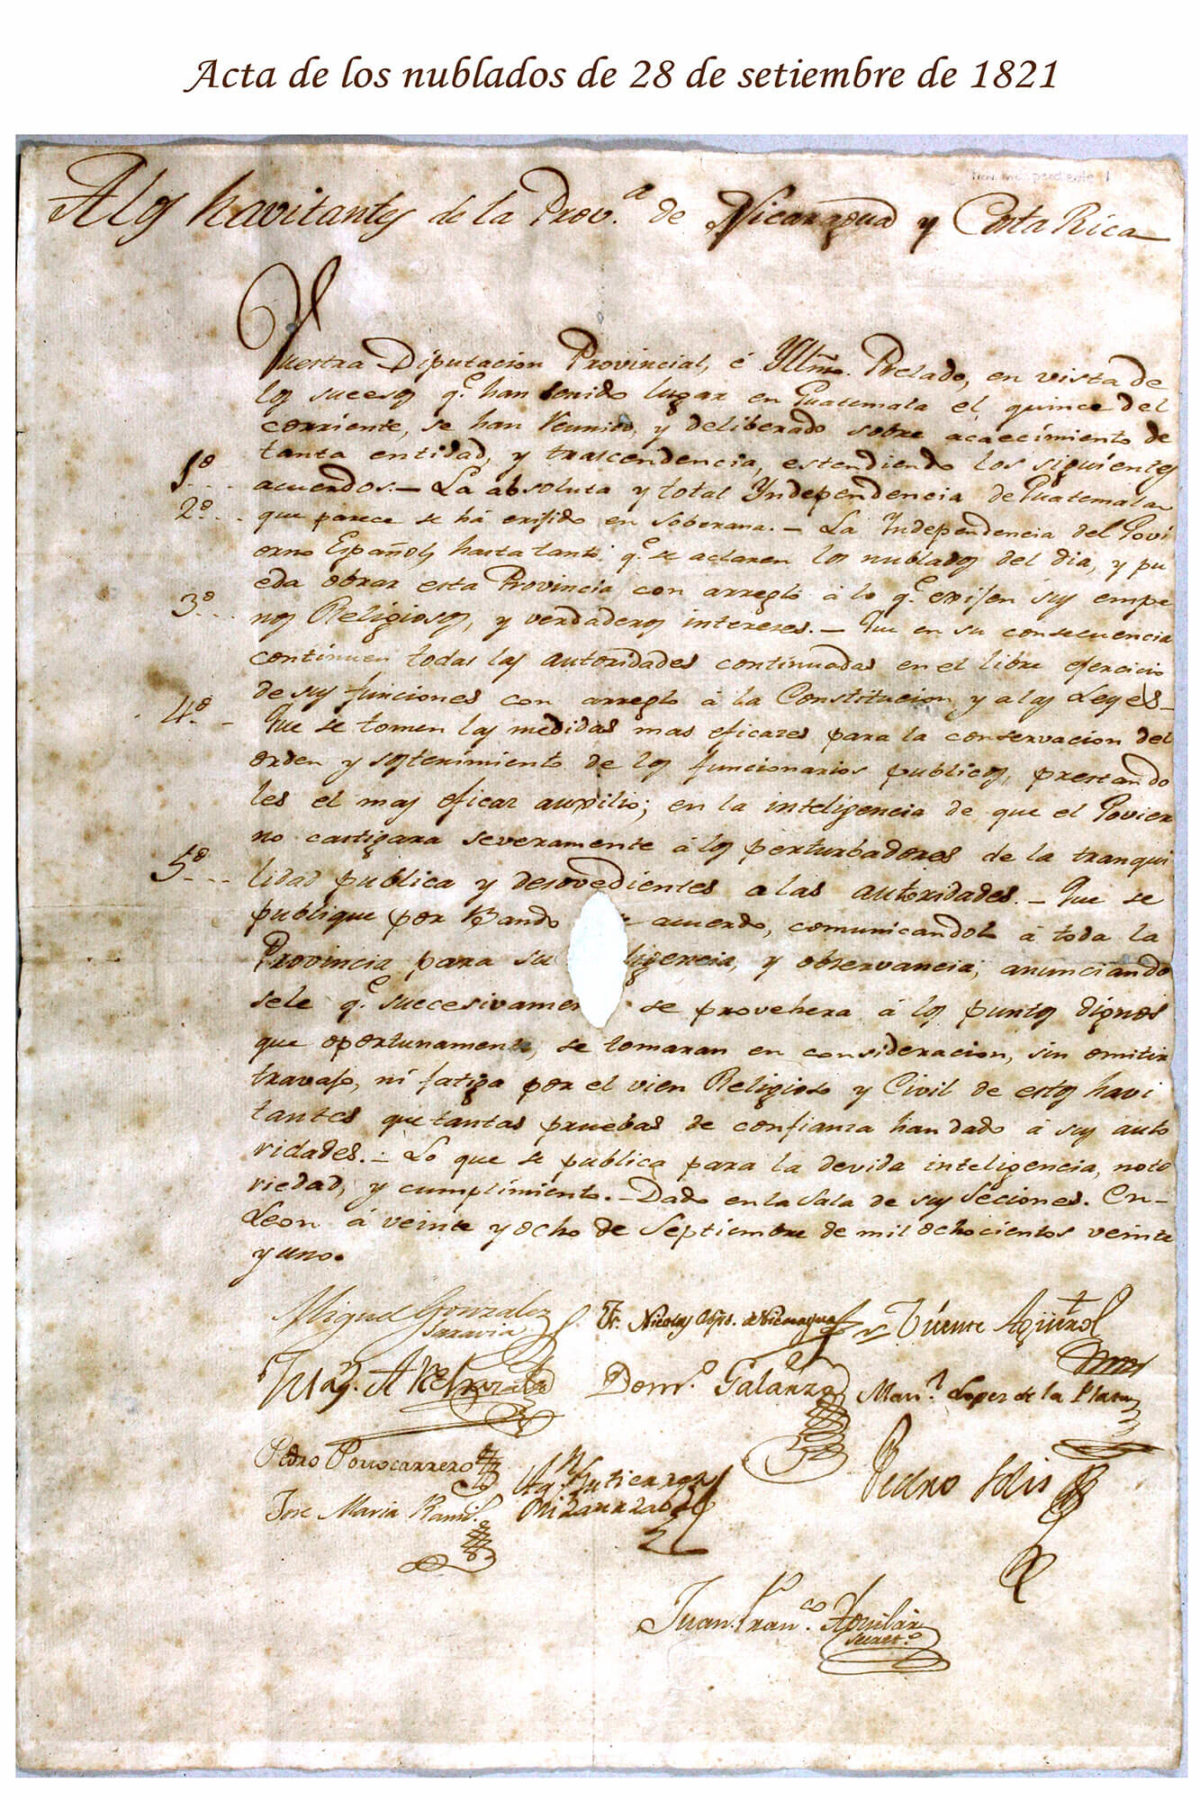 Acta de los nublados de 28 de setiembre de 1821
A los havitantes de la Prov.ª de Nicaragua y Costa Rica
Vuestra Diputacion Provincial, é Yllmo. Prelado, en vista de
los sucesos q.e han tenido lugar en Guatemala el quince del
corriente, se han reunido, y deliberado sobre acaecimiento de
tanta entidad, y trascendencia, estendiendo los siguientes
1º acuerdos.— La absoluta y total Yndependencia de Guatemala
2º que parece se há erijido en soberana.— La Independencia del Govi
erno Español, hasta tanto q.e se aclaren los nublados del dia, y pu
eda obrar esta Provincia con arreglo á lo q.e exijen sus empe
3º nos Religiosos, y verdaderos intereses.— Que en su consecuencia
continuen todas las autoridades continuadas en el libre ejercicio
de sus funciones con arreglo á la Constitucion y a las Leyes—
4º Que se tomen las medidas mas eficazes para la conservacion del
orden y sostenimiento de los funcionarios publicos, prestando
les el mas eficaz auxilio; en la inteligencia de que el Govier
no castigara severamente á los perturbadores de la tranqui
5º lidad publica y desovedientes a las autoridades.— Que se
publique por Bando acuerdo, comunicandolo á toda la
Provincia para su ligencia, y observancia; anunciando
sele q.e succesivamen se provehera á los puntos dignos
que oportunamente, se tomaran en consideracion, sin omitir
travajo, ni fatiga por el vien Religioso y Civil de estos havi
tantes que tantas pruebas de confianza han dado á sus auto
ridades.— Lo que se publica para la devida inteligencia, noto
riedad, y cumplimiento.— Dado en la Sala de sus Seciones. En—
Leon á veinte y ocho de Septiembre de mil ochocientos veinte
y uno.
Miguel Gonzalez
Saravia
Fr. Nicolas Obpo. de Nicaragua
Vicente Agüero
Dom.º Galarza
Man.l Lopez de la Plata
Pedro Portocarrero
Ag.n Gutierrez
Lizarzabal
Pedro Solis
Jose Maria Ramz.
Juan Fran.co Aguilar
Secret.º